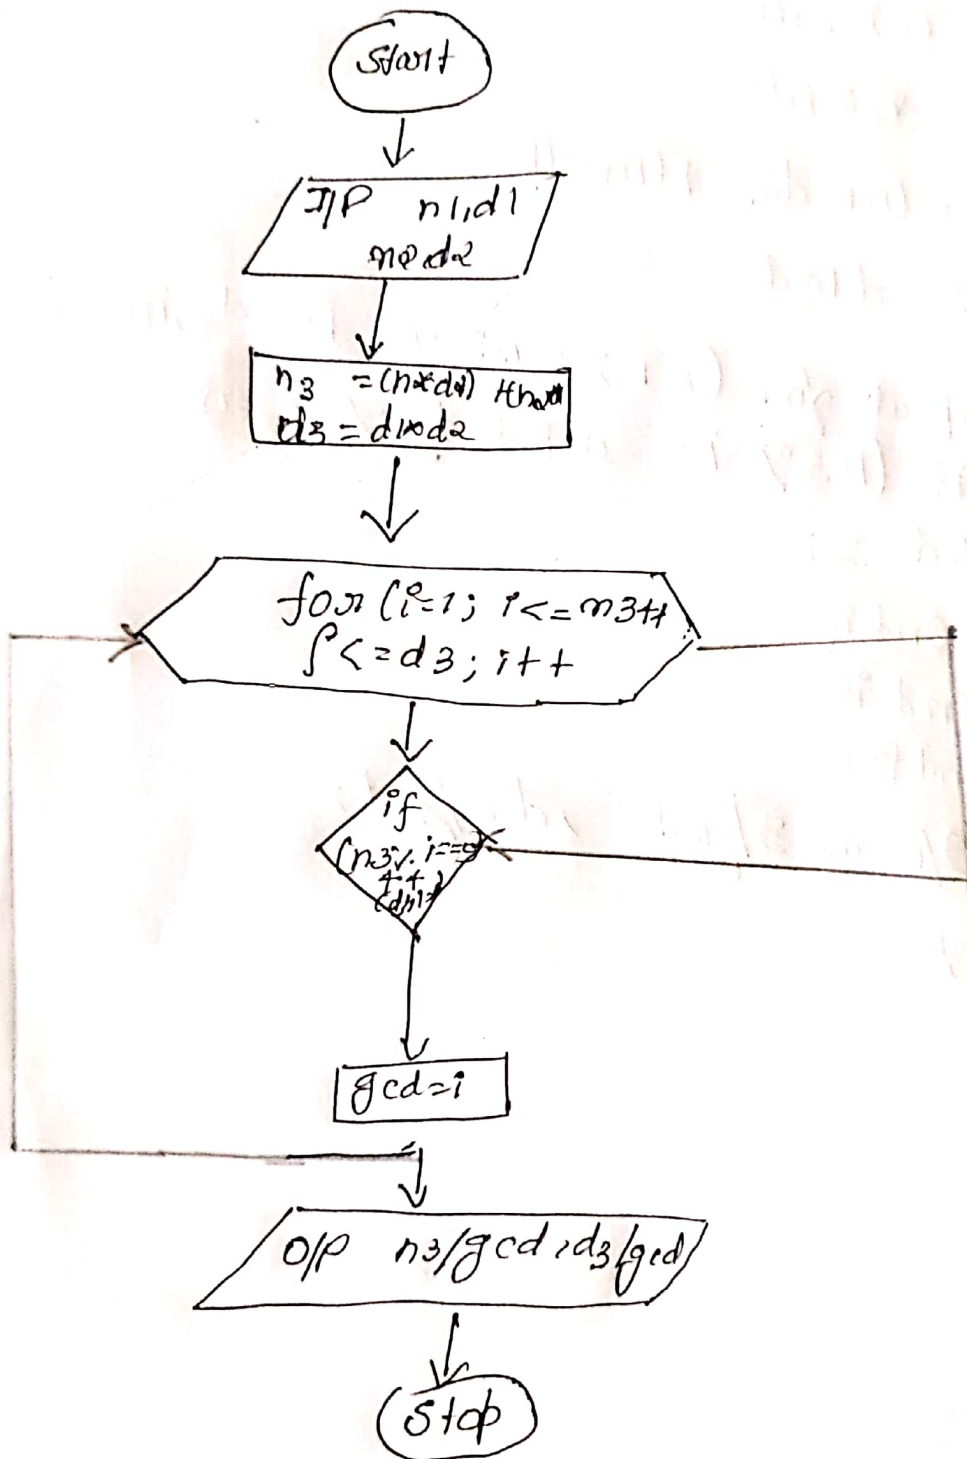 Start
I/P n1,d1
n2,d2
n3 =
d3 = d1*d2
for (i=1; i<=n3++
i<=d3; i++
if
(n3%i==0
gcd=i
O/P n3/gcd,d3/gcd
Stop